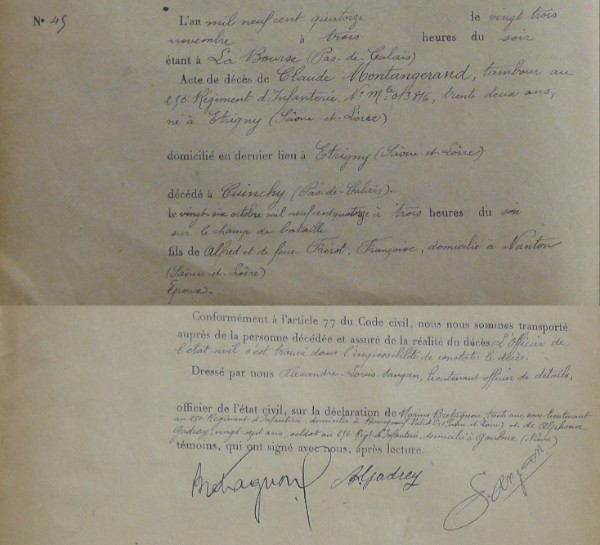 N° 45
L'an mil neuf cent quatorze le vingt trois
novembre à trois heures du soir
étant à La Bourse (Pas-de-Calais)
Acte de décès de Claude Montangerand, tambour au
256 Régiment d'Infanterie, N° Mle 013816, trente deux ans,
né à Etrigny (Saône-et-Loire)
domicilié en dernier lieu à Etrigny (Saône-et-Loire)
décédé à Cuinchy (Pas-de-Calais).
le vingt six octobre mil neuf cent quatorze à trois heures du soir
sur le champ de bataille
fils de Alfred et de feue Françoise, domicilié à Nanton
(Saône-et-Loire)
Epoux.
Conformément à l'article 77 du Code civil, nous nous sommes transporté
auprès de la personne décédée et assuré de la réalité du décès L'officier de
l'état civil s'est trouvé dans l'impossibilité de constater le décès.
Dressé par nous Alexandre-Louis Sangan, lieutenant-officier de détails,
officier de l'état civil, sur la déclaration de Marius trente ans, sous-lieutenant
au 256 Régiment d'Infanterie, domicilié à et de Alphonse
Gadrey, vingt sept ans, soldat au 256 Régt d'Infanterie, domicilié à
témoins, qui ont signé avec nous, après lecture.
A. Gadrey